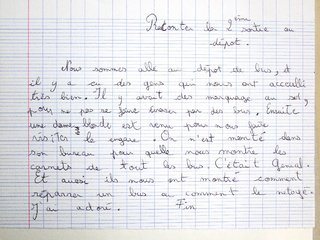 Raconter la 2ème sortie au
dépot.
Nous sommes allé au dépot de bus, et
il y a eu des gens qui nous ont acceuilli
très bien. Il y avait des marquage au sol,
pour ne pas se faire écraser par des bus. Ensuite
une dame blonde est venu pour nous faire
visiter le
On n'est monté dans
son bureau pour quelle nous montre les
carnets de tout les bus. C'était Génial.
Et aussi ils nous ont montré comment
réparrer un bus ou comment le netoyé.
J'ai adoré. Fin